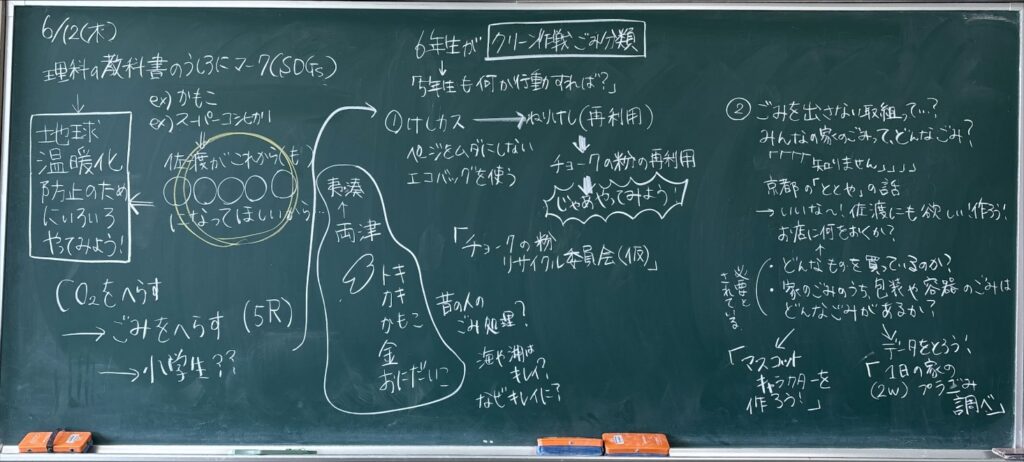 6/12(木)
理科の教科書のうしろにマーク(SDGs)
ex) かもこ
ex) スーパーコシヒカリ
佐渡がこれから(も)
○○○○○
になってほしいから…
地球
温暖化
防止のため
にいろいろ
やってみよう!
CO2をへらす
→ごみをへらす (5R)
→小学生??
東・湊
↑
両津
トキ
カキ
かもこ
金
おにだいこ
6年生が クリーン作戦ごみ分類
「5年生も何か行動すれば?」
① けしカス → ねりけし(再利用)
ページをムダにしない
エコバッグを使う
チョークの粉の再利用
じゃあやってみよう!
「チョークの粉
リサイクル委員会(仮)」
昔の人の
ごみ処理?
海や湖は
キレイ?
なぜキレイに?
② ごみを出さない取組って…?
みんなの家のごみって、どんなごみ?
「「「「知りません」」」」
京都の「ととや」の話
→いいな~! 佐渡にも欲しい!作ろう!
お店に何をおくか?
必要と
されている
・どんなものを買っているのか?
・家のごみのうち、包装や容器のごみは
どんなごみがあるか?
「マスコット
キャラクターを
作ろう!」
データをとろう!
「1日の家の
(2W) プラごみ
調べ」